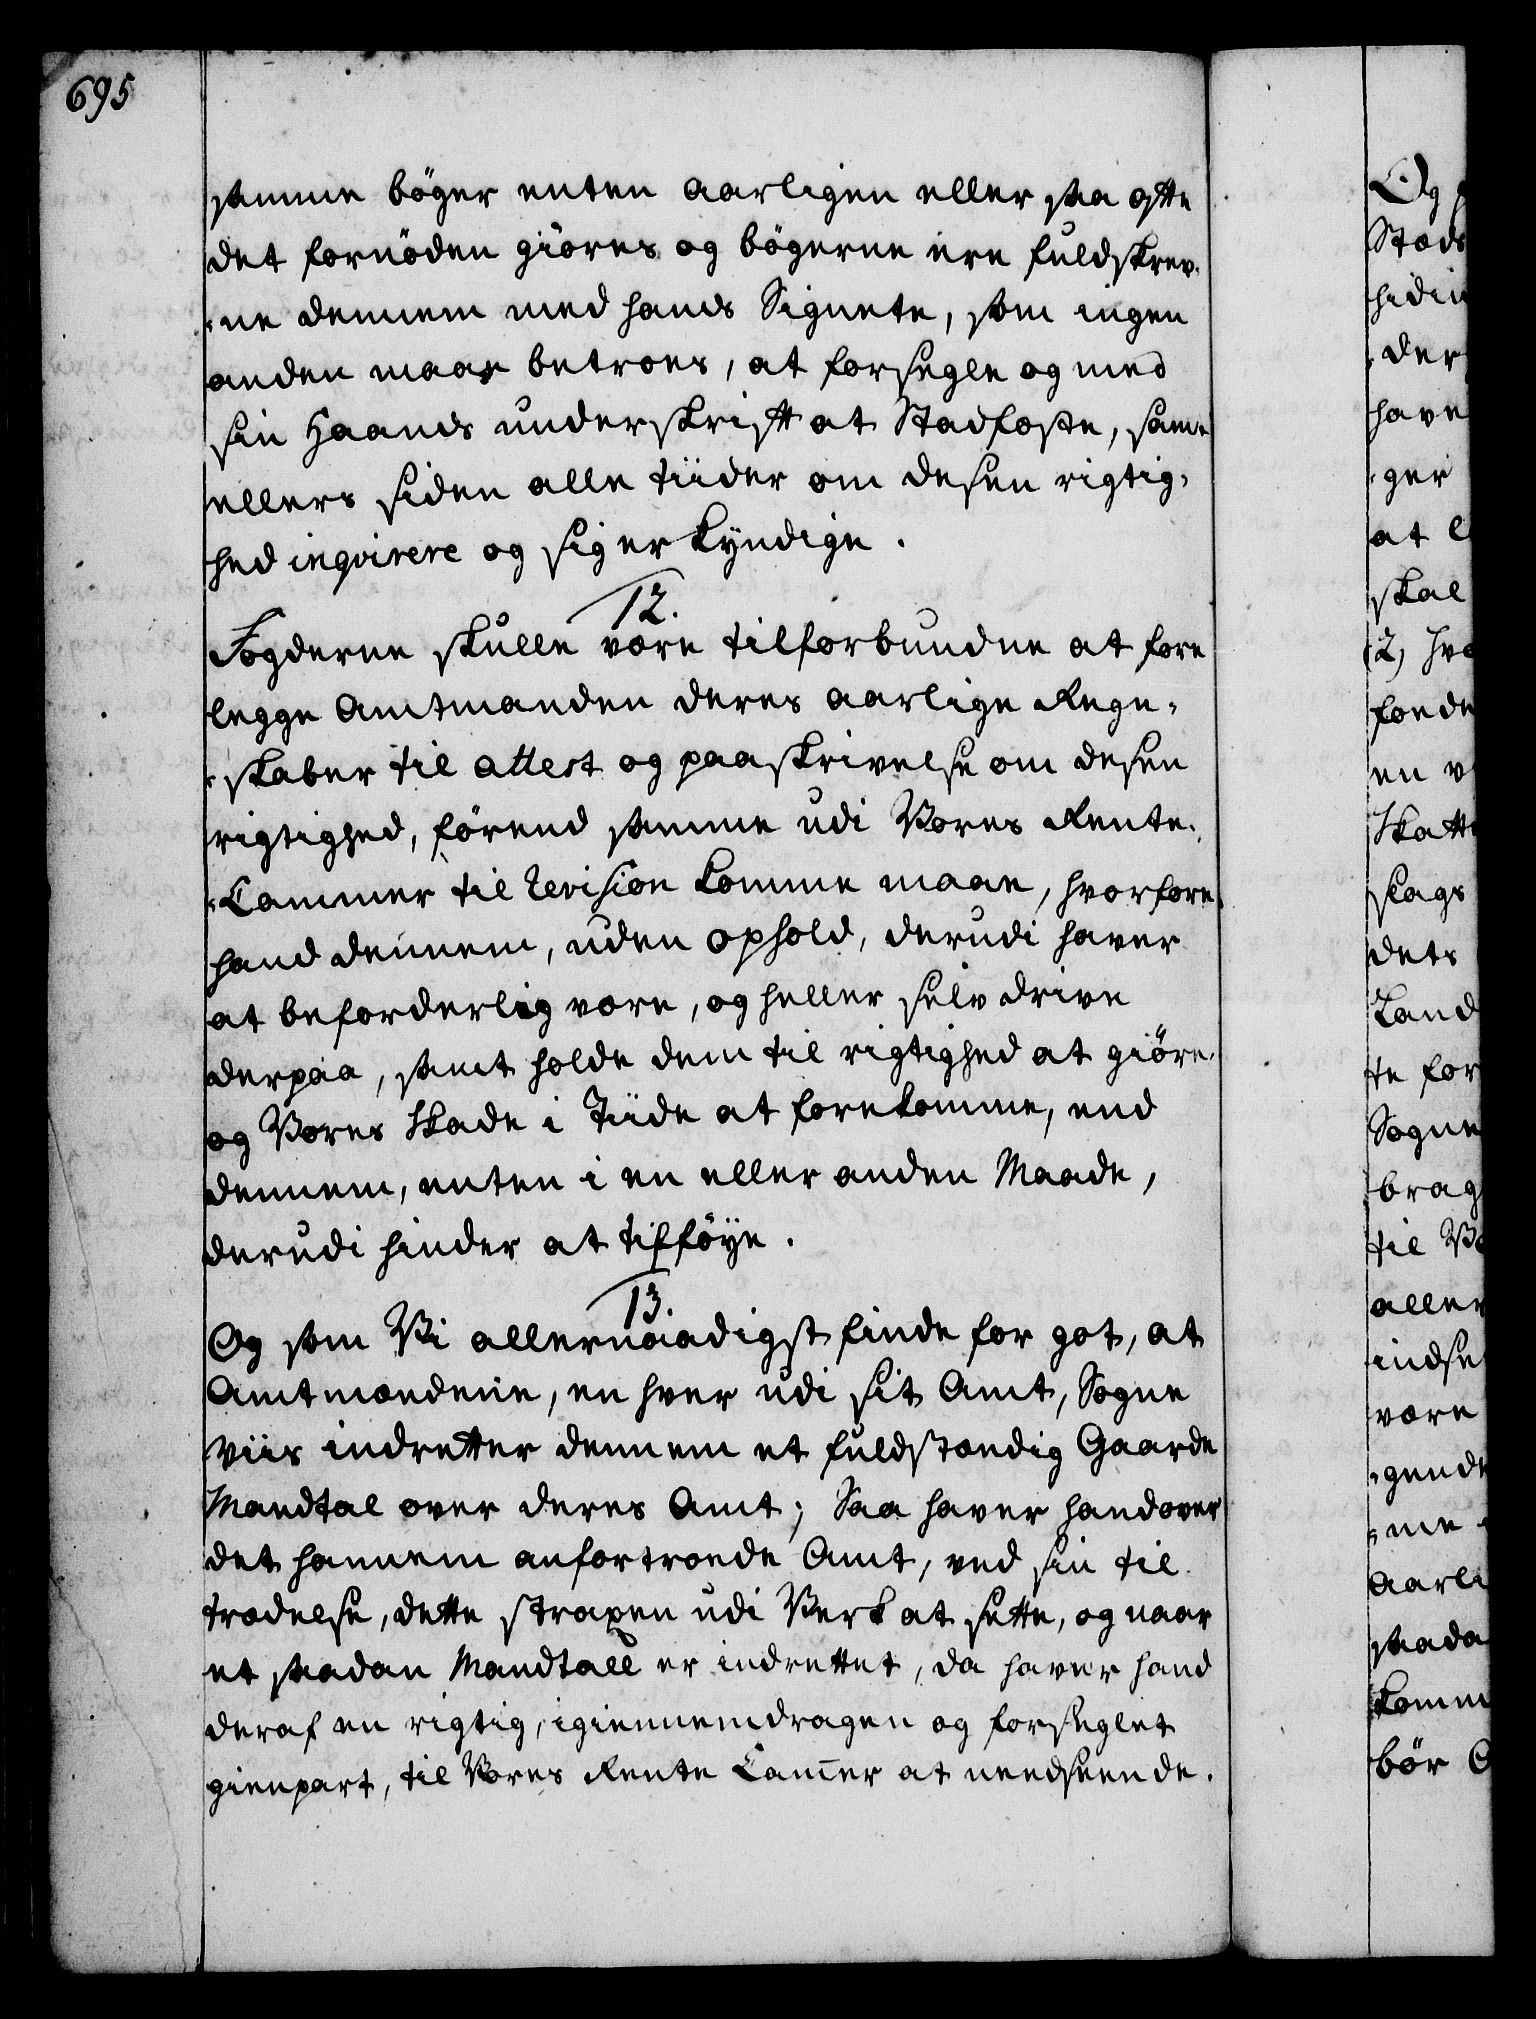 695
samme bøger enten aarligen eller saa ofte
det fornöden giöres og bögerne ere fuldskrev¬
ne dennem med hands Signete, som ingen
anden maae betroes, at forsegle og med
sin Haands underskrifft at Stadfæste, samt
ellers siden alle tiider om desen rigtig¬
hed inqvirere og sig erkyndige.
12.
Fogderne skulle være tilforbundne at fore
legge Amtmanden deres aarlige Regn¬
skaber til attest og paaskrivelse om desen
rigtighed, förend samme udi Vores Rente¬
Cammer til revision komme maae, hvorfore
hand dennem, uden ophold, derudi haver
at beforderlig være, og heller selv drive
derpaa, samt holde dem til rigtighed at giöre
og Vores Skade i Tiide at forekomme, end
dennem, enten i en eller anden Maade,
derudi hinder at tilföye.
13.
Og som Vi allernaadigst finde for got, at
Amtmændene, en hver udi sit Amt, Sogne
viis indretter dennem et fuldstændig Gaarde
Mandtal over deres Amt; Saa haver hand over
det hannem anfortroede Amt, ved sin til
trædelse, dette straxen udi Verk at sette, og naar
et saadan Mandtall er indrettet, da haver hand
deraf en rigtig, igiennemdragen og forseglet
gienpart, til Vores Rente Cammer at needsende.
Og
Stæd
hidin
der
have
ger
at
skal
(2) hva
en
Skatt
slags
dets
Land
te for
Sogne
brag
til
aller
indse
være
gende
me
Aarli
saada
komm
bör